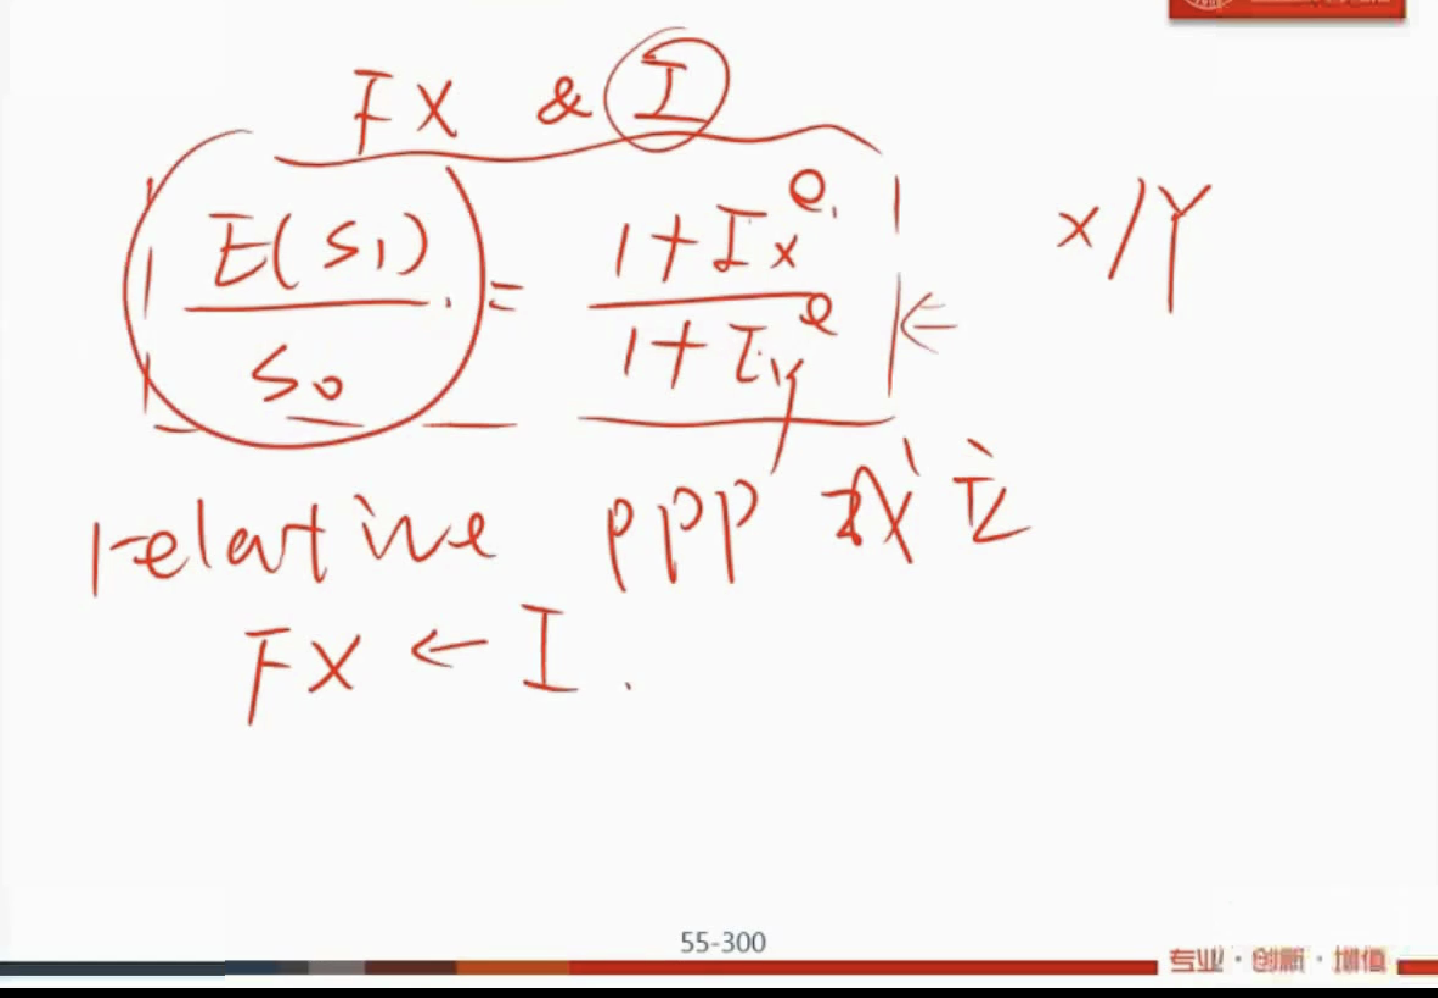 FX & I
E(S₁) / S₀ = 1+Iₓᵉ / 1+I_yᵉ
X/Y
←
relative PPP 成立
FX ← I.
55-300
专业·创新·增值